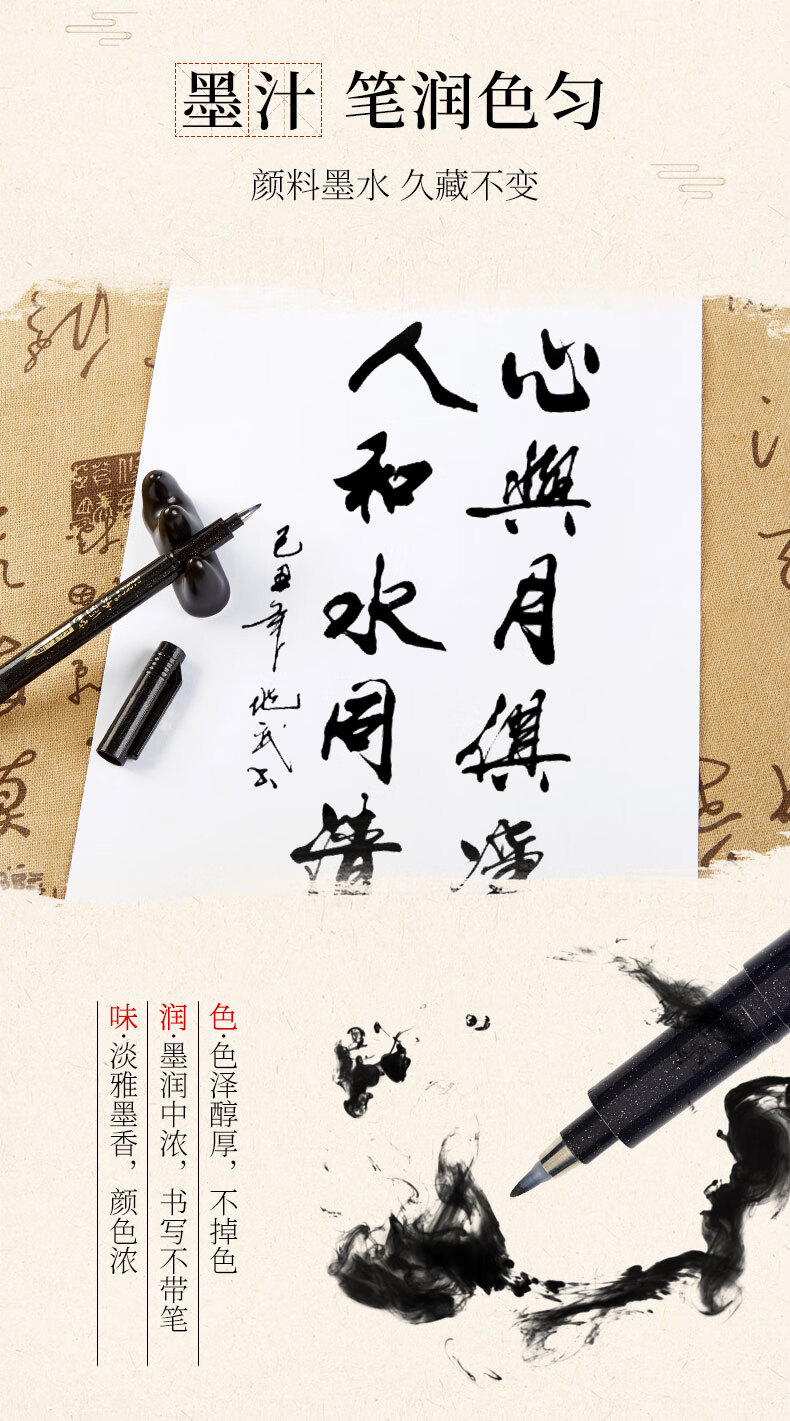 墨汁 笔润色匀
颜料墨水 久藏不变
心與月俱
人和水同清
己丑年
色·色泽醇厚，不掉色
润·墨润中浓，书写不带笔
味·淡雅墨香，颜色浓